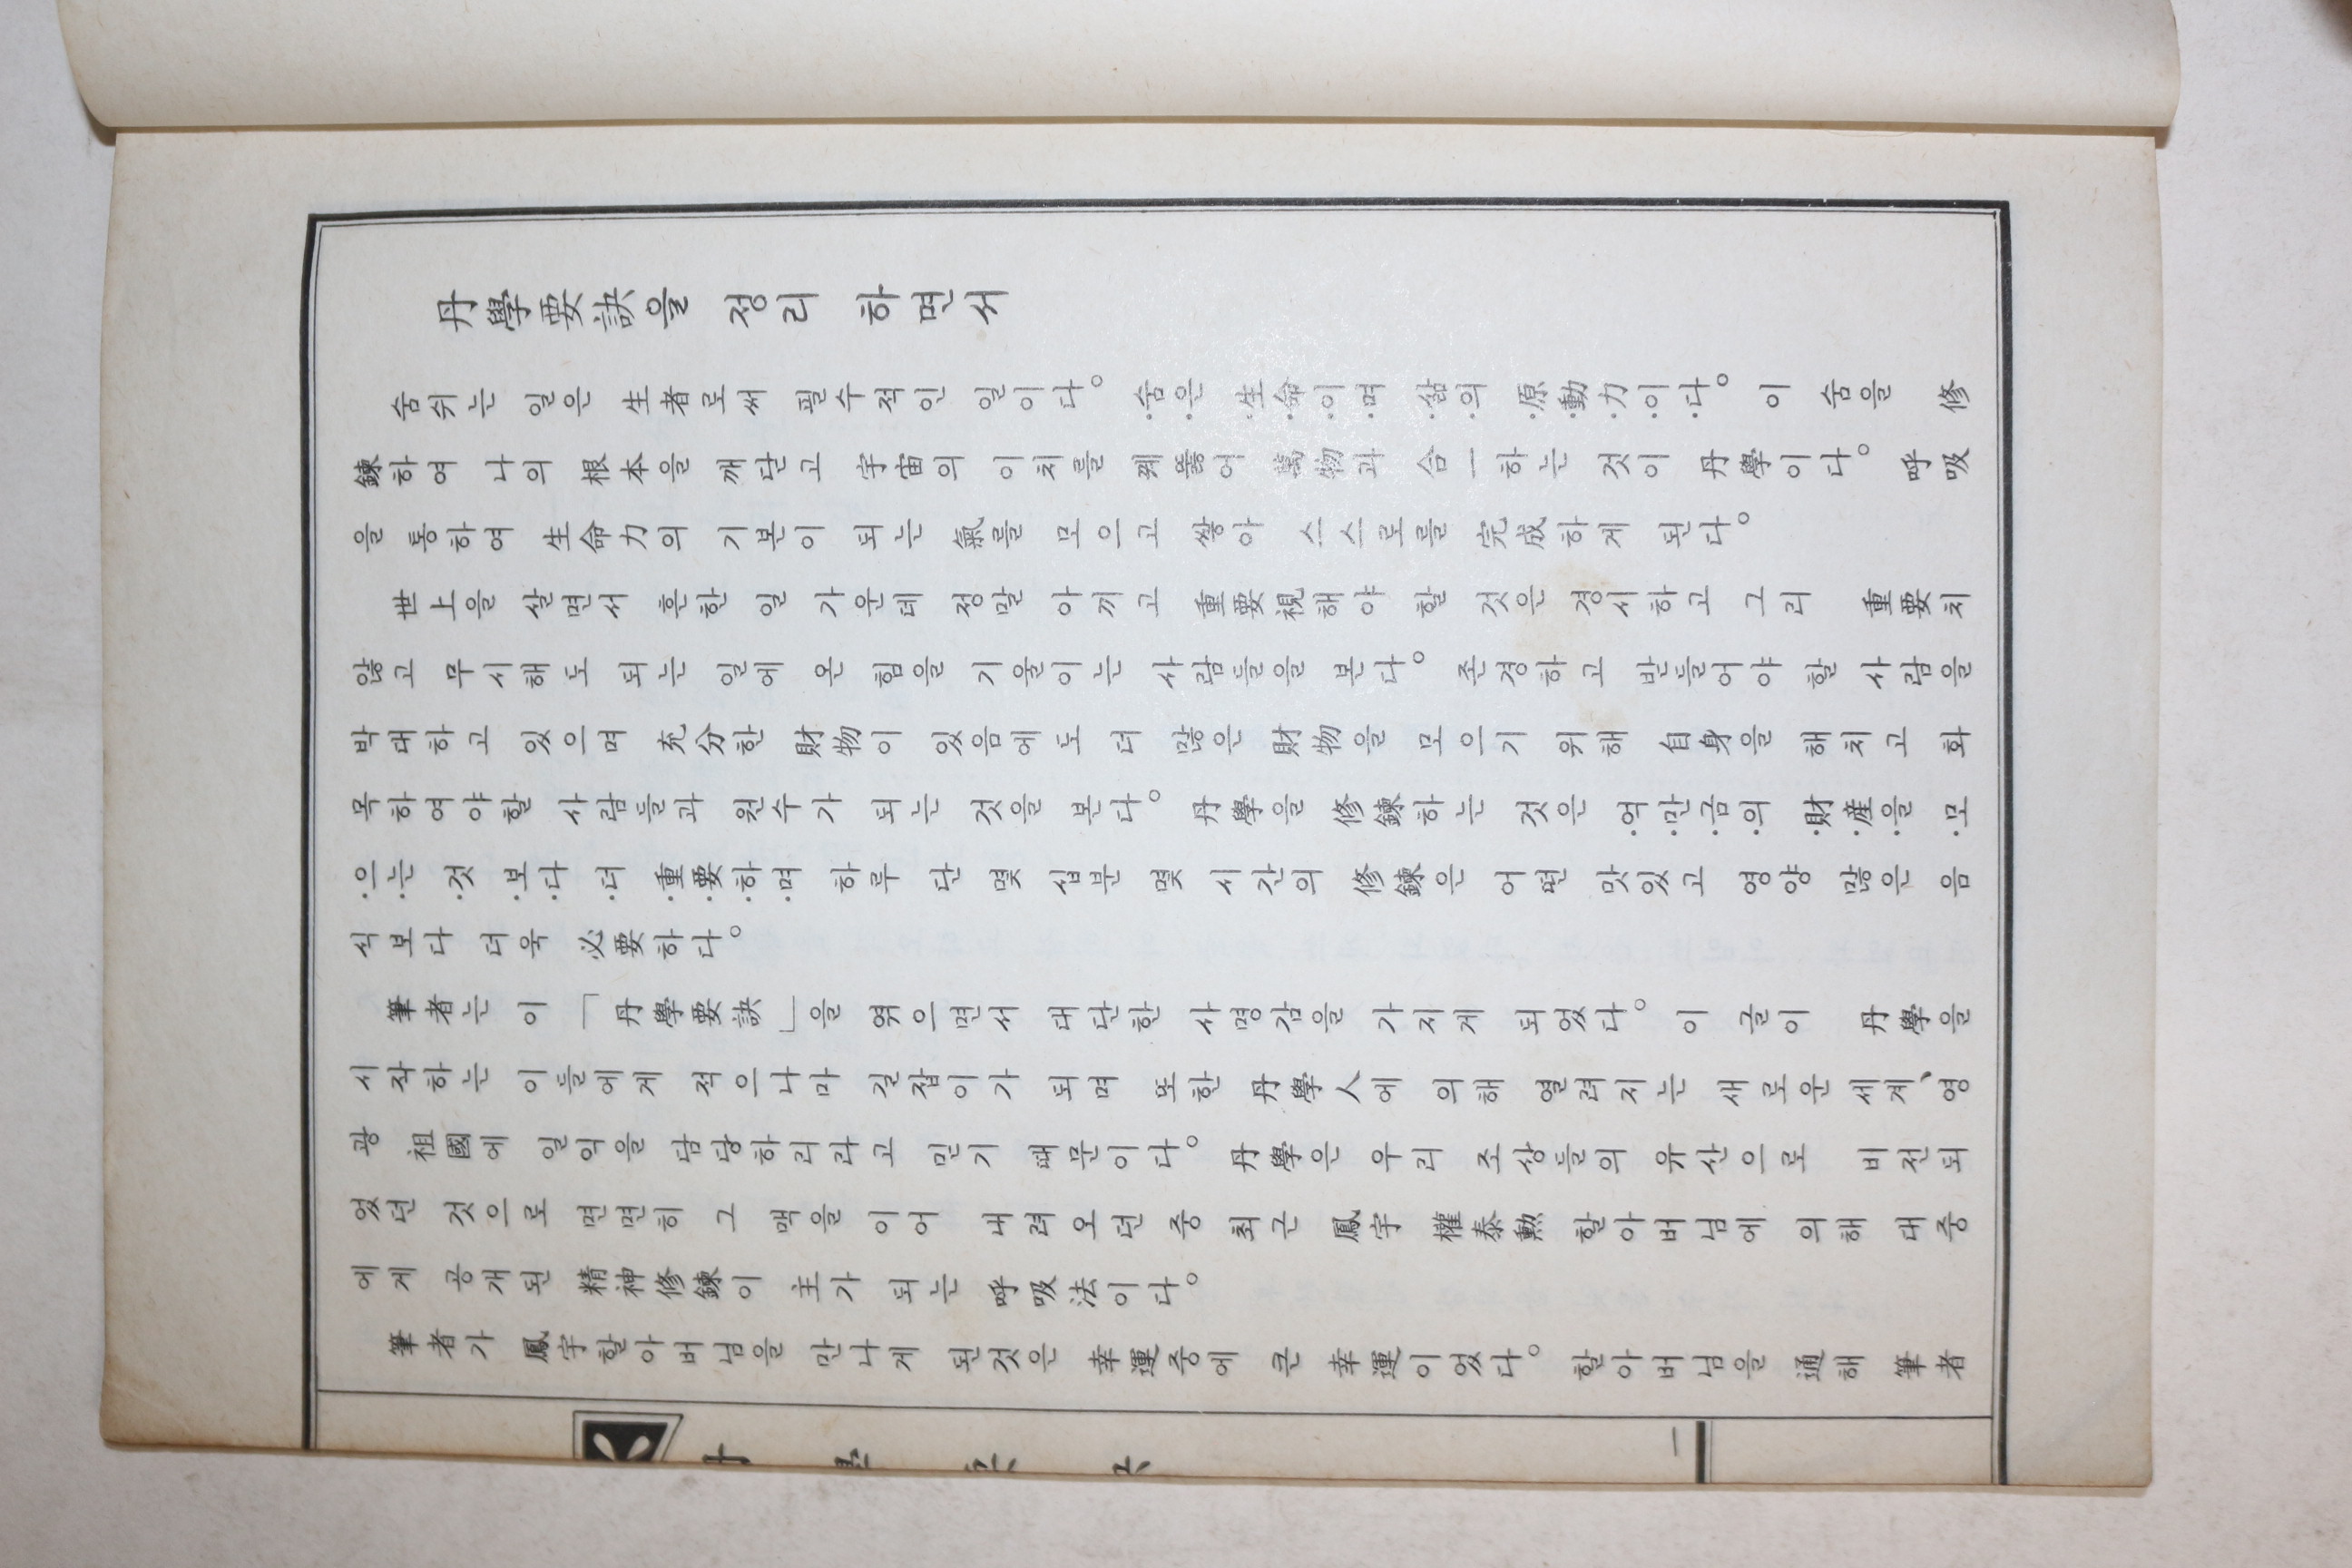 丹學要訣을 정리 하면서
숨쉬는 일은 生者로써 필수적인 일이다。 숨은 生命이며 삶의 原動力이다。 이 숨을 修
鍊하여 나의 根本을 깨닫고 宇宙의 이치를 꿰뚫어 萬物과 合一하는 것이 丹學이다。 呼吸
을 통하여 生命力의 기본이 되는 氣를 모으고 쌓아 스스로를 完成하게 된다。
世上을 살면서 흔한 일 가운데 정말 아끼고 重要視해야 할 것은 경시하고 그리 重要치
않고 무시해도 되는 일에 온 힘을 기울이는 사람들을 본다。 존경하고 받들어야 할 사람을
박대하고 있으며 充分한 財物이 있음에도 더 많은 財物을 모으기 위해 自身을 해치고 화
목하여야할 사람들과 원수가 되는 것을 본다。 丹學을 修鍊하는 것은 억만금의 財産을 모
으는 것 보다 더 重要하며 하루 단 몇 십분 몇 시간의 修鍊은 어떤 맛있고 영양 많은 음
식보다 더욱 必要하다。
筆者는 이 「丹學要訣」을 엮으면서 대단한 사명감을 가지게 되었다。 이 글이 丹學을
시작하는 이들에게 적으나마 길잡이가 되며 또한 丹學人에 의해 열려지는 새로운 세계、영
광 祖國에 일익을 담당하리라고 믿기 때문이다。 丹學은 우리 조상들의 유산으로 비전되
었던 것으로 면면히 그 맥을 이어 내려오던 중 최근 鳳宇 權泰勲 할아버님에 의해 대중
에게 공개된 精神修鍊이 主가 되는 呼吸法이다。
筆者가 鳳宇할아버님을 만나게 된것은 幸運중에 큰 幸運이었다。 할아버님을 通해 筆者
一